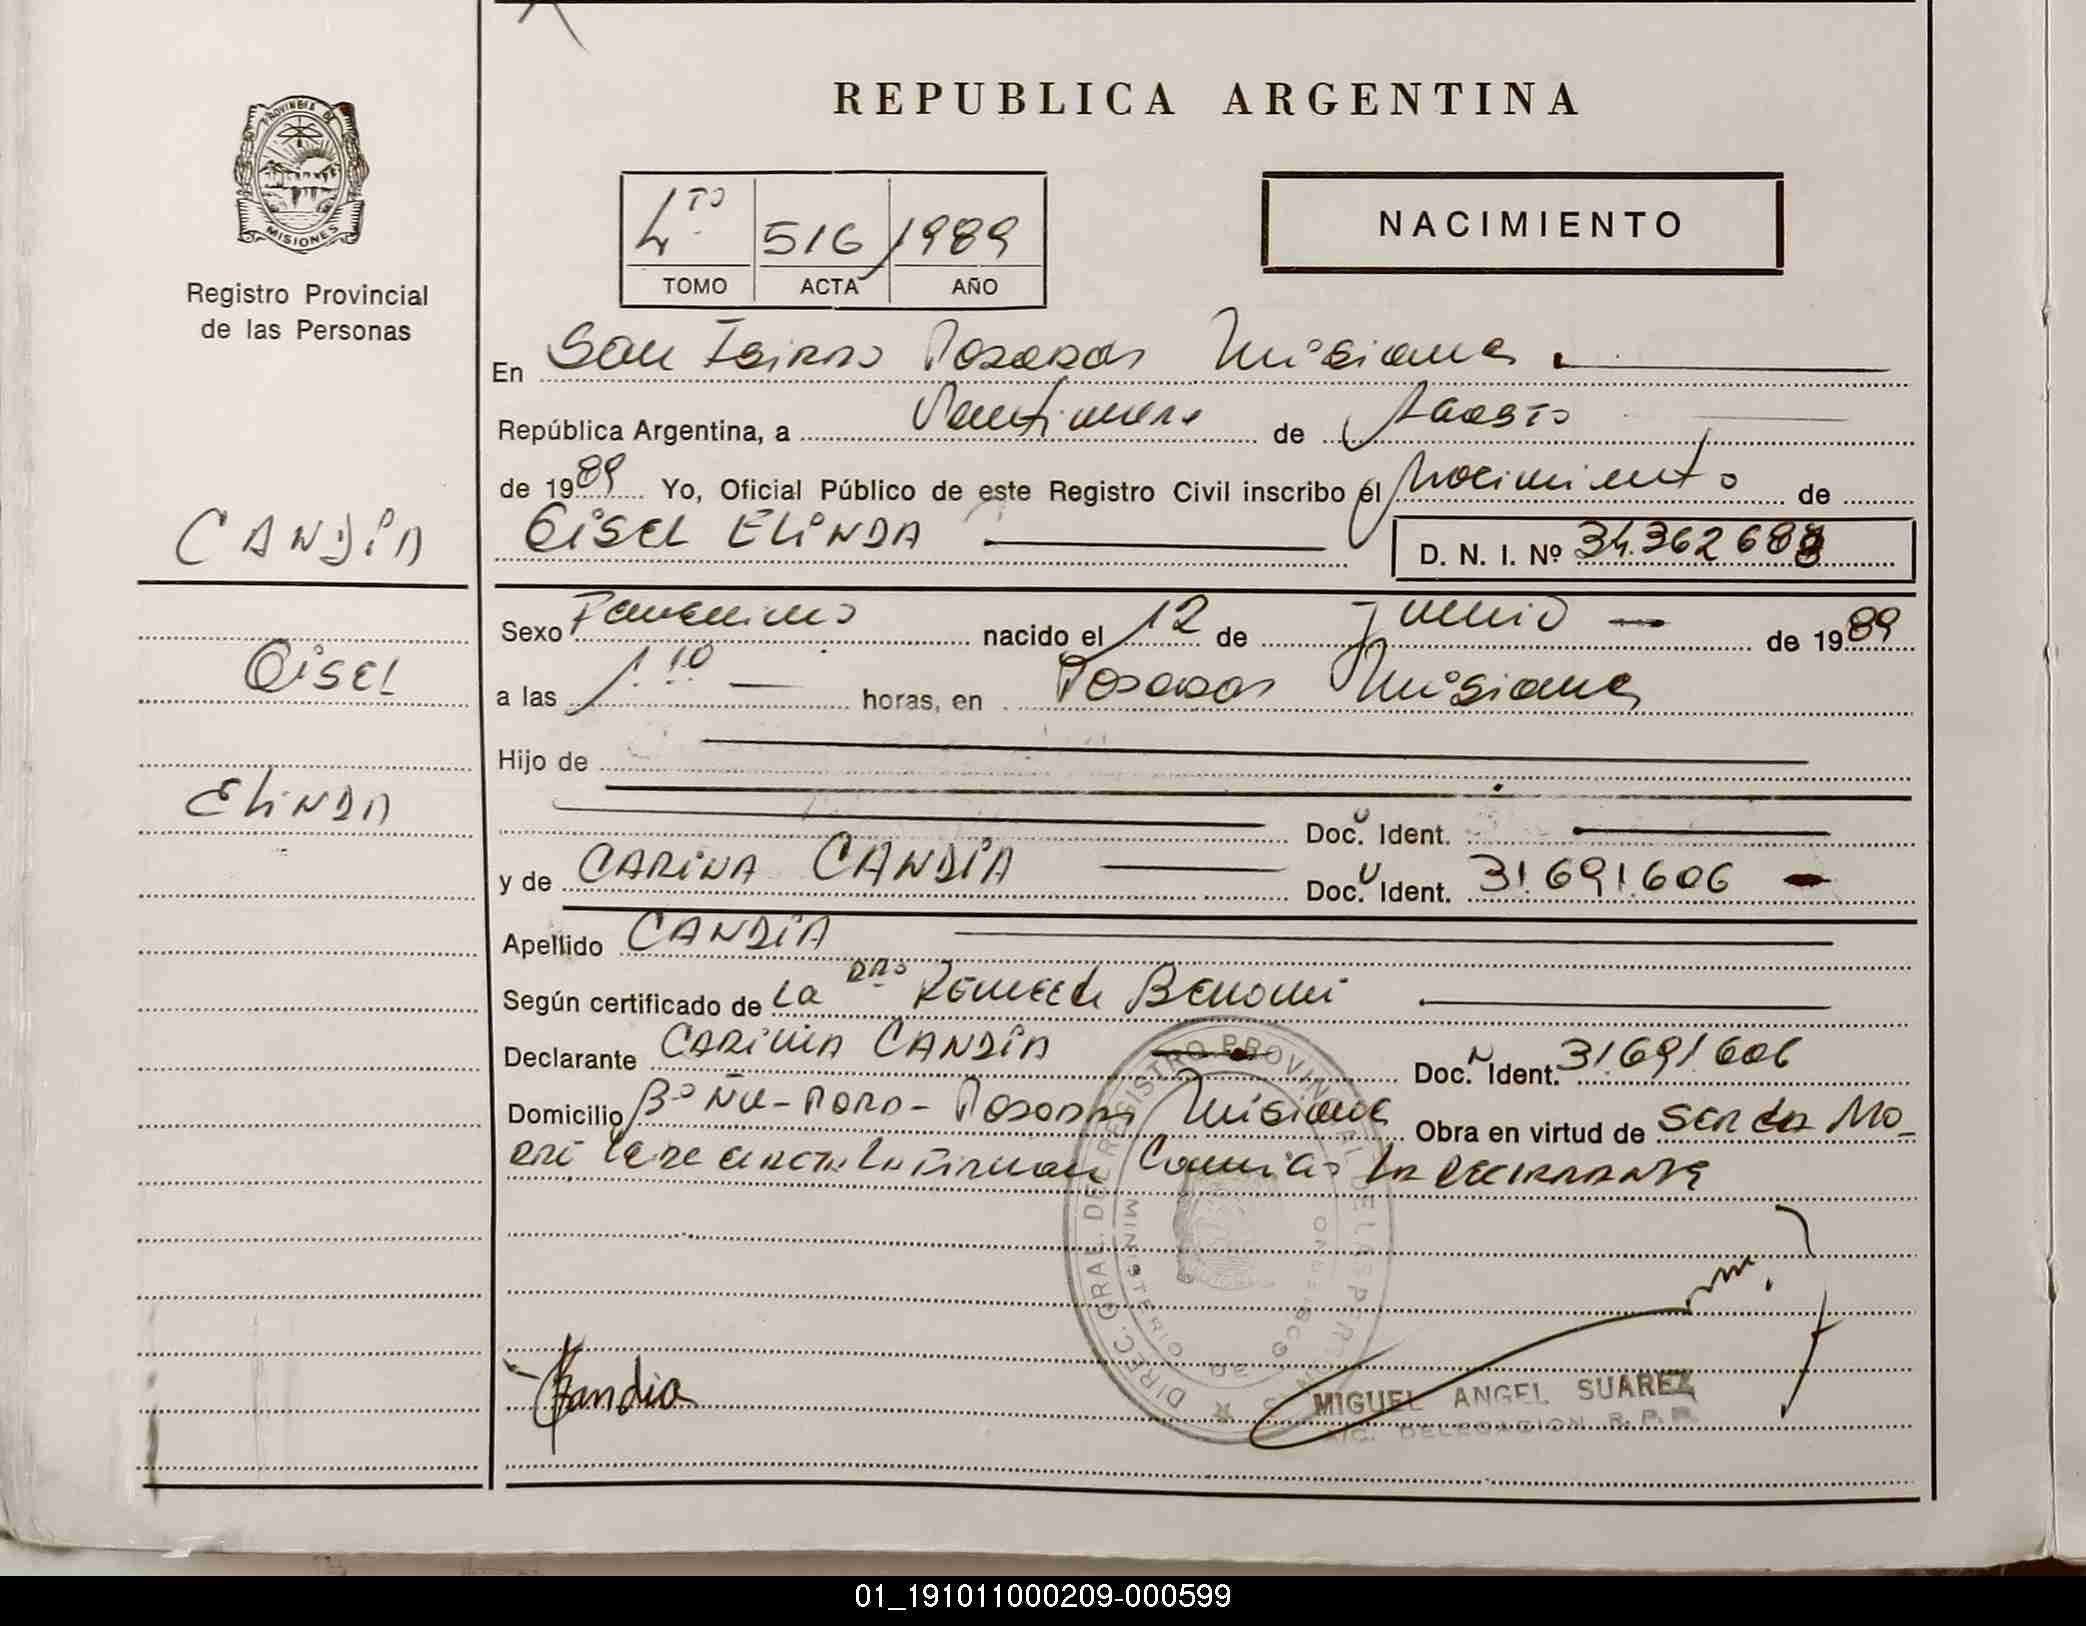 REPUBLICA ARGENTINA
PROVINCIA DE
MISIONES
Registro Provincial
de las Personas
4to 516 1989
TOMO ACTA AÑO
NACIMIENTO
En San Isidro Posadas Misiones
República Argentina, a Veintinueve de Agosto
de 1989 Yo, Oficial Público de este Registro Civil inscribo el Nacimiento de
GISEL ELINDA D. N. I. Nº
CANDIA
GISEL
ELINDA
Sexo Femenino nacido el 12 de Junio de 1989
a las 1.10 horas, en Posadas Misiones
Hijo de
Doc. Ident.
y de CARINA CANDIA Doc. Ident. 31.691.606
Apellido CANDIA
Según certificado de La Dra
Declarante CARINA CANDIA Doc. Ident. 31.691.606
Domicilio Bº ÑU-PORA-Posadas Misiones Obra en virtud de
Firman Conmigo LA DECLARANTE
DIREC. GRAL. DEL REGISTRO PROVINCIAL DE LAS PERSONAS
MINISTERIO DE GOBIERNO
Candia
MIGUEL ANGEL SUAREZ
A/C. DELEGACION R. P. P.
01_191011000209-000599